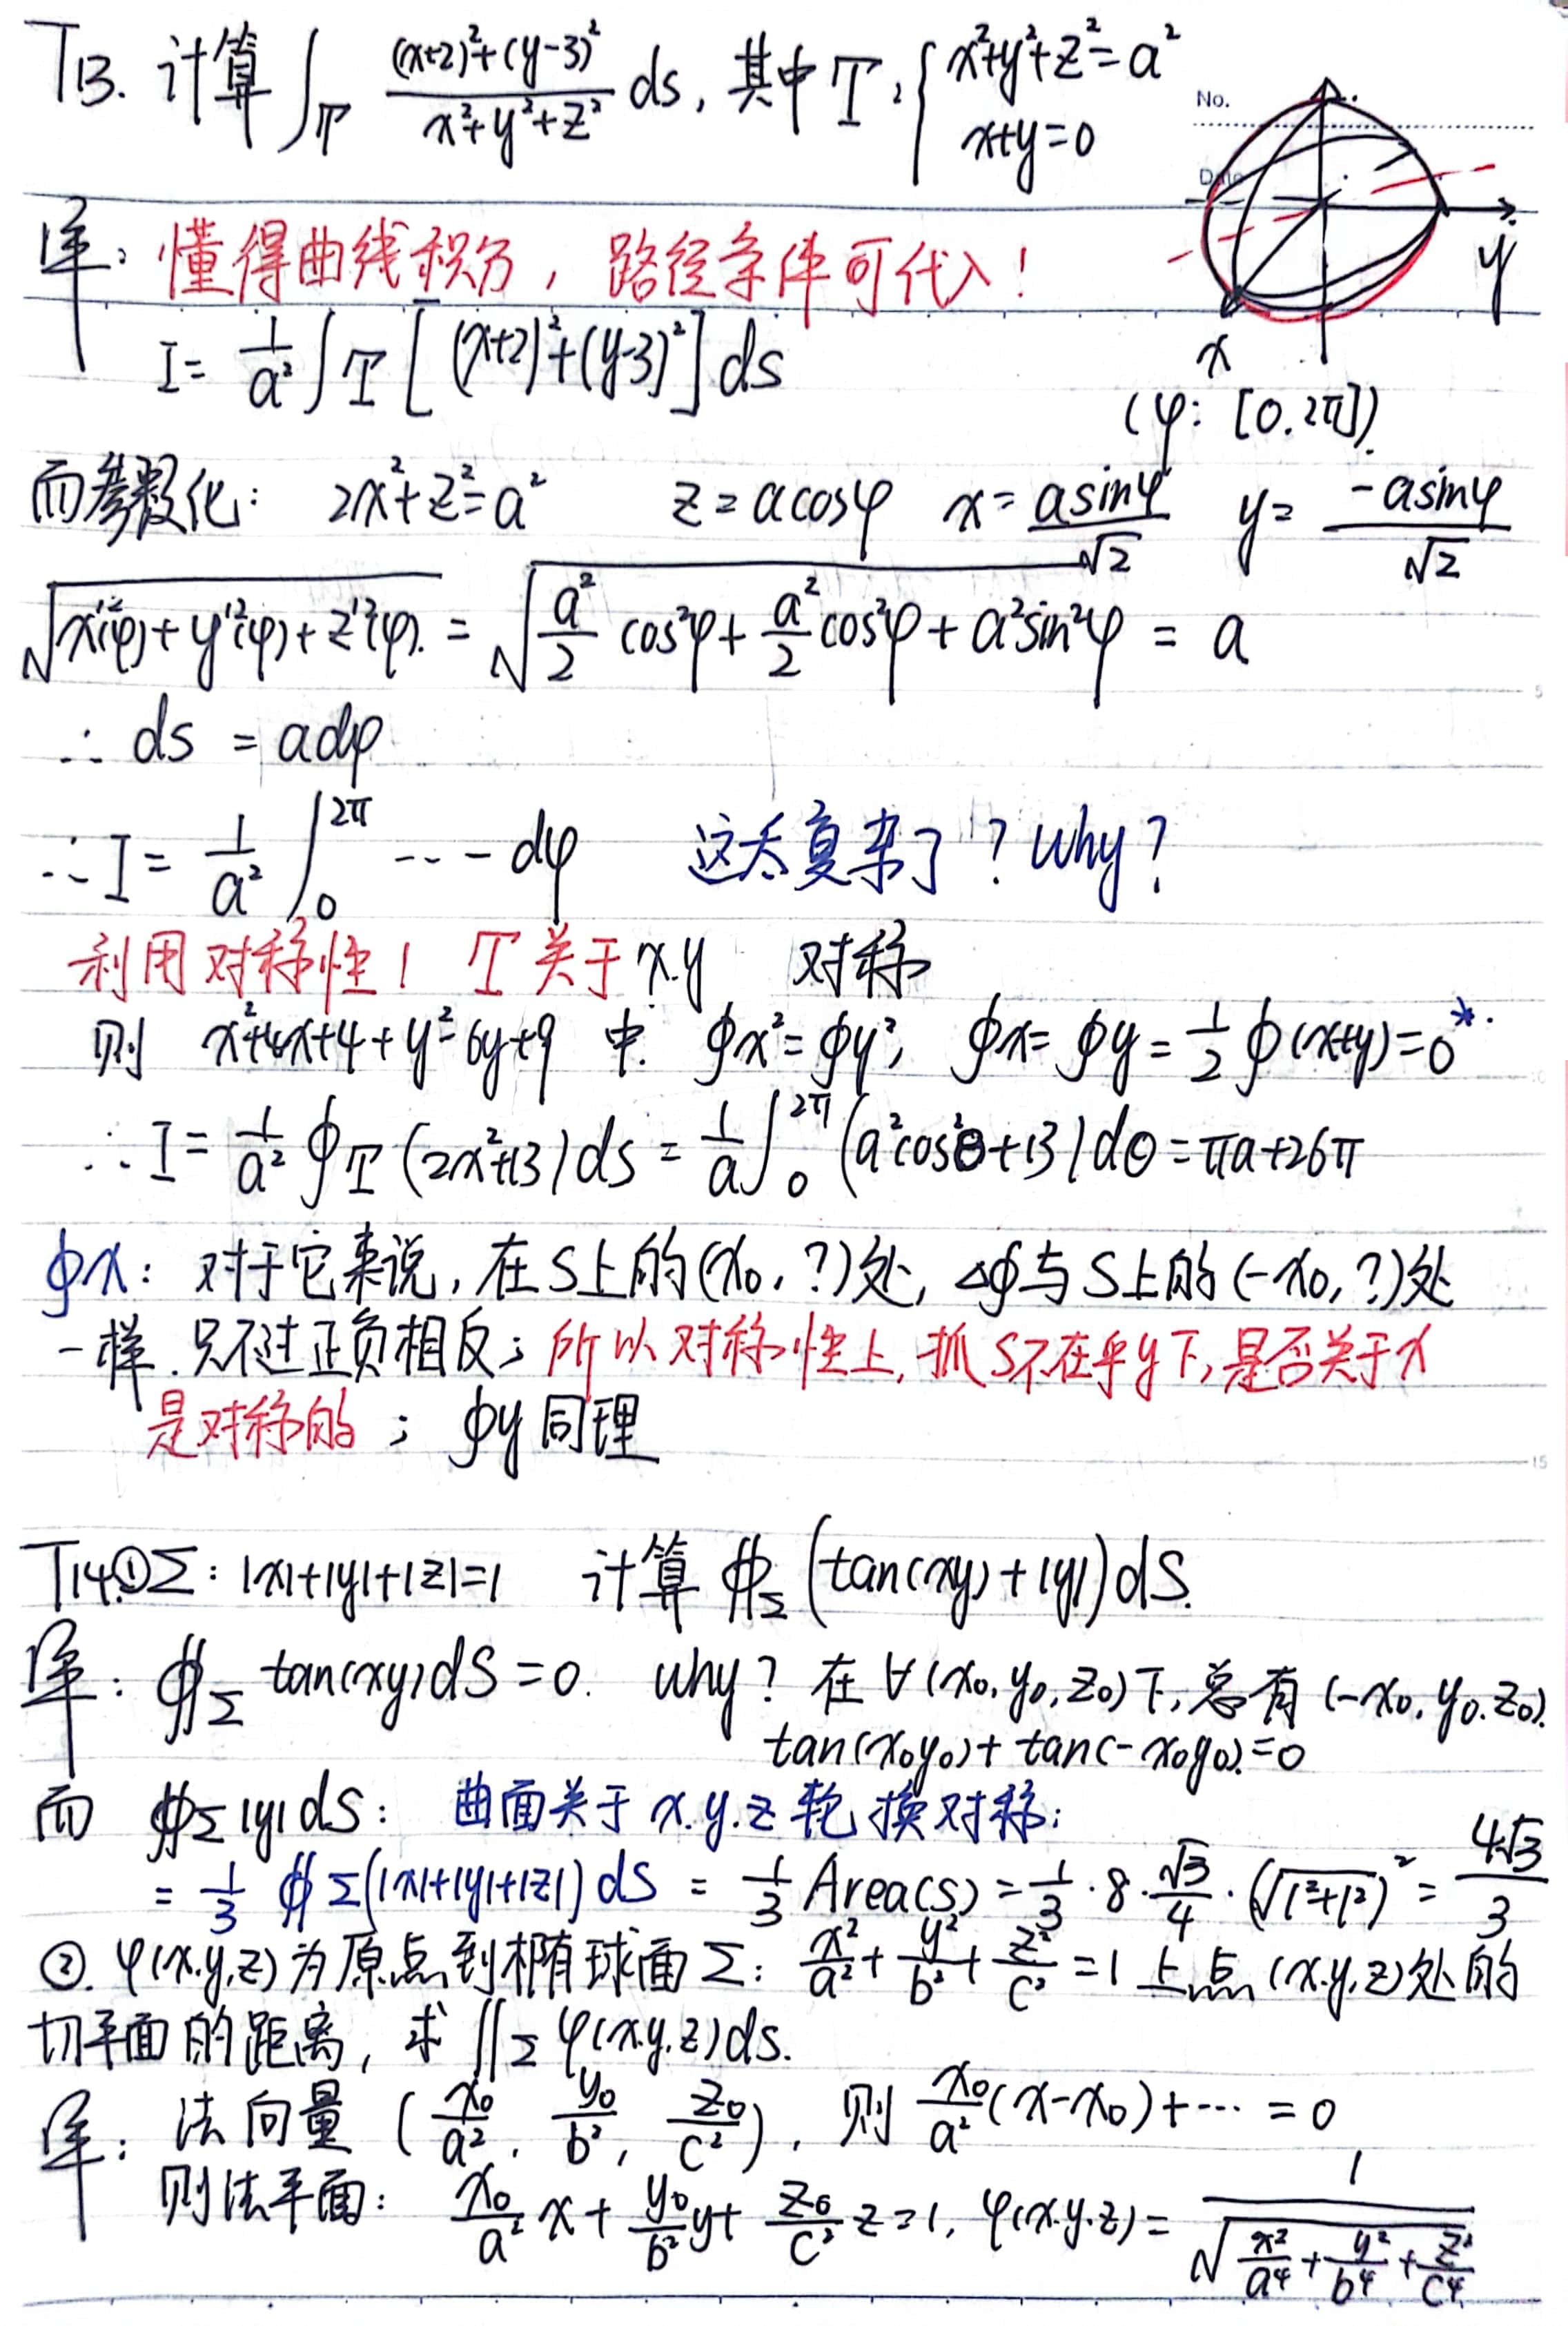 T13. 计算 ∫_Γ ((x+2)²+(y-3)²)/(x²+y²+z²) ds, 其中 Γ: { x²+y²+z²=a²
x+y=0
No.
Date
y
x
解: 懂得曲线积分, 路径条件可代入!
I= 1/a² ∫_Γ [(x+2)²+(y-3)²] ds
(φ: [0.2π]).
而参数化: 2x²+z²=a² z=acosφ x= asinφ/√2 y= -asinφ/√2
√(x'²(φ)+y'²(φ)+z'²(φ)) = √(a²/2 cos²φ + a²/2 cos²φ + a²sin²φ) = a
∴ ds = adφ
∴ I = 1/a² ∫_0^2π ---- dφ 这太复杂了? Why?
利用对称性! Γ关于x.y 对称
则 x²+4x+4+y²-6y+9 中. ∮x²=∮y², ∮x=∮y=1/2∮(x+y)=0*.
∴ I= 1/a² ∮_Γ (2x²+13)ds = 1/a ∫_0^2π (a²cos²θ+13)dθ=πa+26π
∮x: 对于它来说, 在S上的(x₀, ?)处, △∮与S上的(-x₀, ?)处
一样.只不过正负相反; 所以对称性上, 抓S不在乎y下, 是否关于x
是对称的 ; ∮y同理
T14.①Σ: |x|+|y|+|z|=1 计算 ∯_Σ (tan(xy)+|y|)dS.
解: ∯_Σ tan(xy)dS=0. why? 在∀(x₀,y₀,z₀)下, 总有(-x₀.y₀.z₀).
tan(x₀y₀)+tan(-x₀y₀)=0
而 ∯_Σ|y|dS: 曲面关于x.y.z轮换对称:
= 1/3 ∯_Σ(|x|+|y|+|z|)dS = 1/3 Area(S) = 1/3·8·√3/4·(√(1²+1²))² = 4√3/3
②. φ(x.y,z)为原点到椭球面Σ: x²/a²+y²/b²+z²/c²=1上点(x.y.z)处的
切平面的距离, 求∬_Σ φ(x.y,z)ds.
解: 法向量 (x₀/a², y₀/b², z₀/c²), 则 x₀/a²(x-x₀)+⋯=0
则法平面: x₀/a² x + y₀/b² y + z₀/c² z=1, φ(x.y.z)= 1/√(x²/a⁴+y²/b⁴+z²/c⁴)